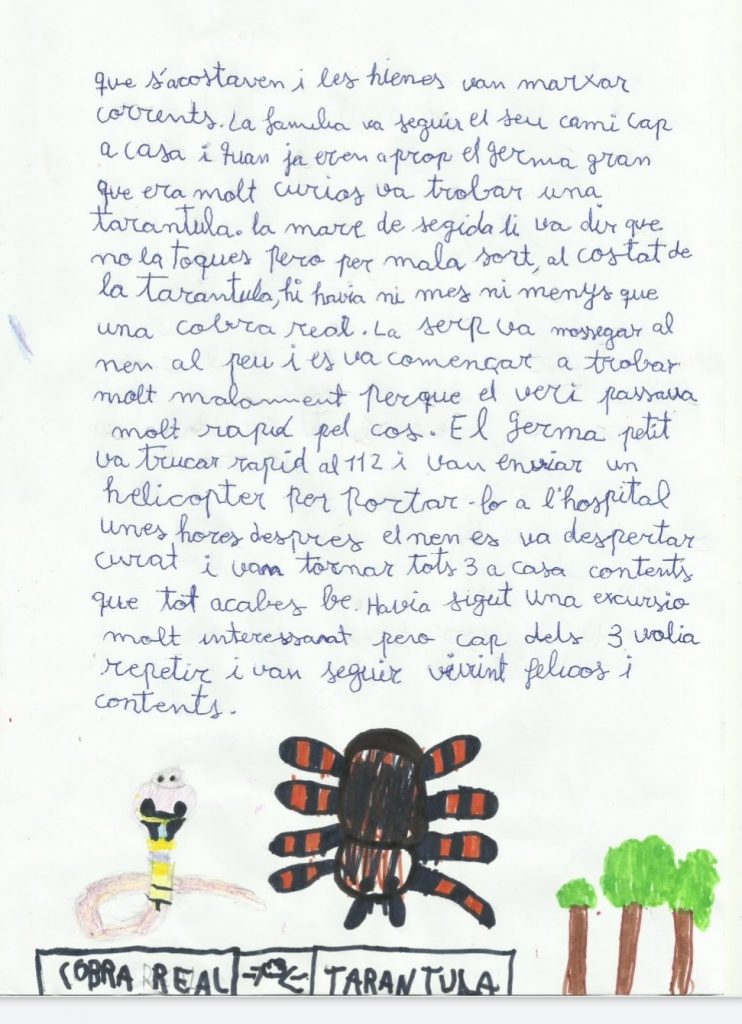 que s'acostaven i les hienes van marxar
corrents. La familia va seguir el seu cami cap
a casa i quan ja eren aprop el germa gran
que era molt curios va trobar una
tarantula. la mare de segida li va dir que
no la toques pero per mala sort, al costat de
la tarantula, hi havia ni mes ni menys que
una cobra real. La serp va mossegar al
nen al peu i es va començar a trobar
molt malament perque el veri passava
molt rapid pel cos. El germa petit
va trucar rapid al 112 i van enviar un
helicopter per portar-lo a l'hospital
unes hores despres el nen es va despertar
curat i van tornar tots 3 a casa contents
que tot acabes be. Havia sigut una excursio
molt interessanat pero cap dels 3 volia
repetir i van seguir vivint feliços i
contents.
COBRA REAL TARANTULA